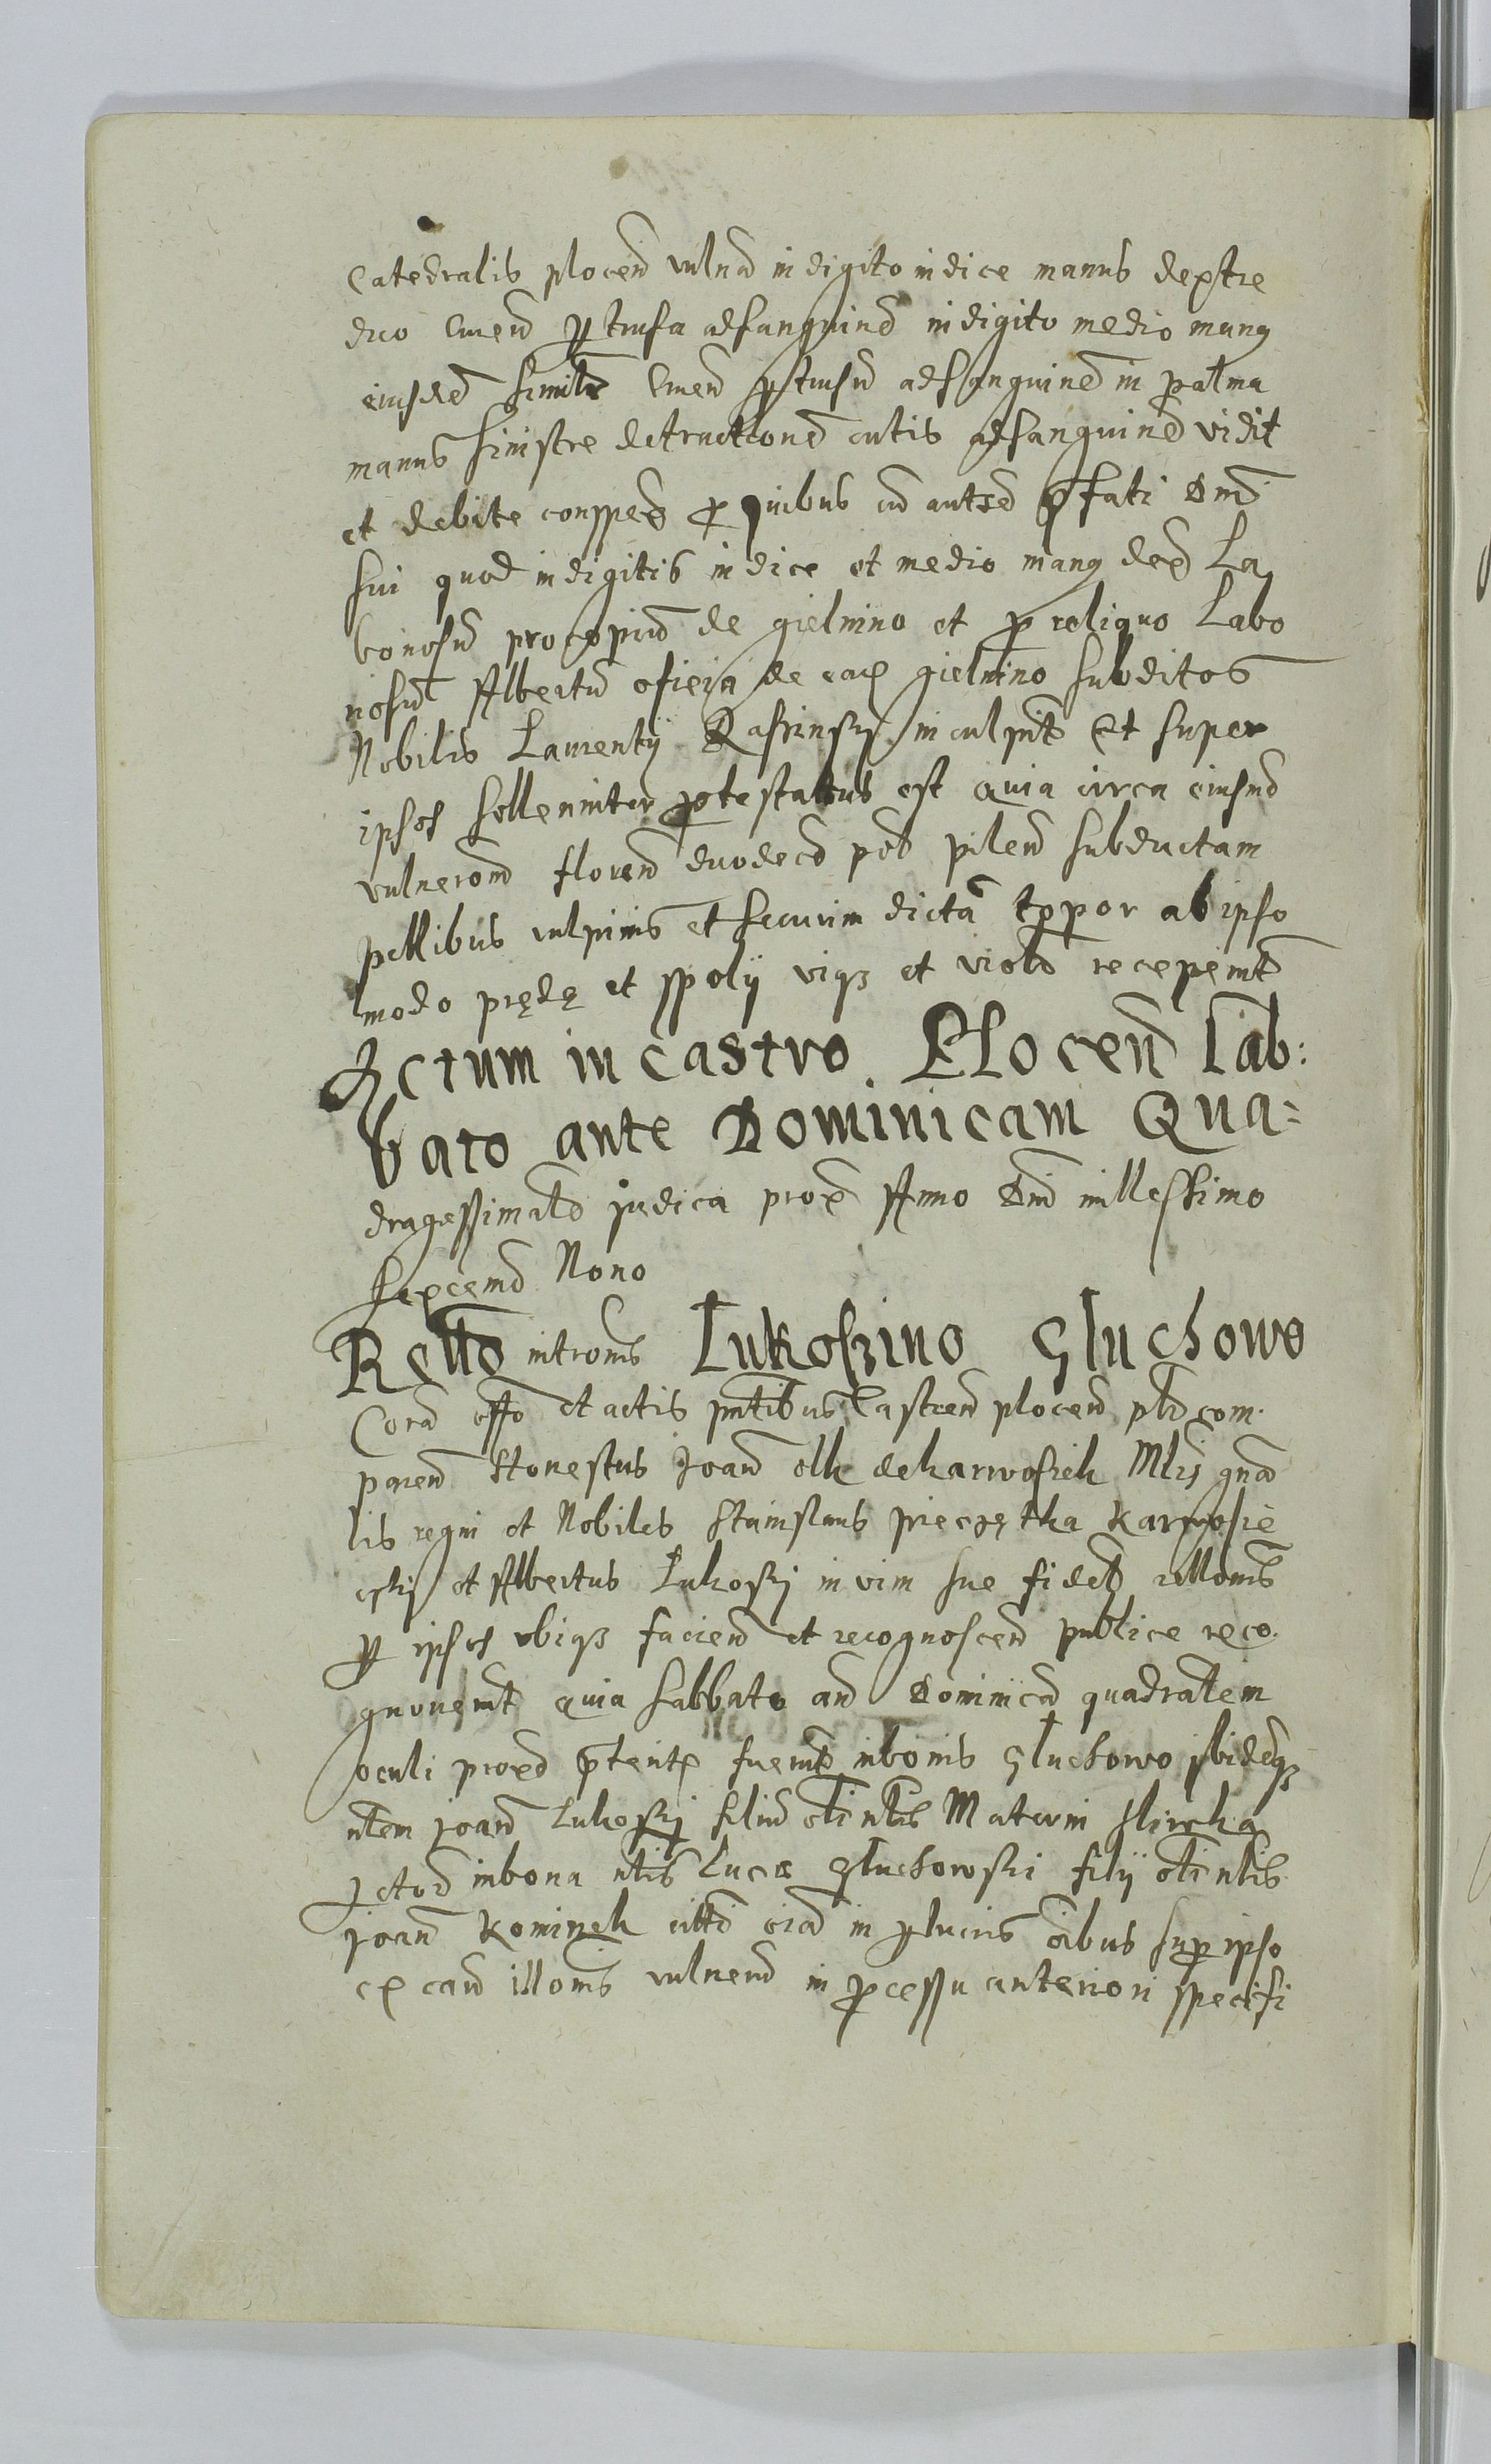 Catedralis plocen vulna in digito indice manus dextre
duo cruen ptrusa ad sanguine in digito medio manus
eiusde simile cruen ptrusu ad sanguine in palma
manus sinistre detractione cutis ad sanguine vidit
et debite conspex p quibus prefati Dni
sui quod in digitis indice et medio manus dex La
boriosu procopiu de gielnino et p reliquo Labo
riosu Albertu de ead gielnino subditos
Nobilis Laurentij inculpit Et super
ipsos sollenniter protestatus est Quia circa eiusmo
vulneraon floren duodeci pileu subductam
pellibus vulpinis et securim dicta topor ab ipso
modo prede et spolij viqz et viole receperint
Actum in castro Plocen Sab:
bato ante Dominicam Qua=
dragessimale judica prox Anno Dni millessimo
sexcente Nono
Relto intromis Lukoszino Gluchowo
Cora offo et actis pntibus Castren plocen com
paren Honestus Joan olk de karwosiek Mlis gna
lis regni et Nobiles Stanislaus pieczętka karwosie
czki et Albertus Lukoski in vim sue fidel rellonis
p ipsos vbiqz facien et recognoscen publice reco
gnouerut quia sabbato an Dominica quadralem
oculi proxe pterite fuerut in bonis Gluchowo ibideqz
nlem Joan Lukoski filiu oli nlis Matern slirka
in bona nlis Luce Gluchowski filij oli nlis
Joan Kominek in pluris oibus super ipso
ex cau illonis vulneru in pcessu anteriori specifi